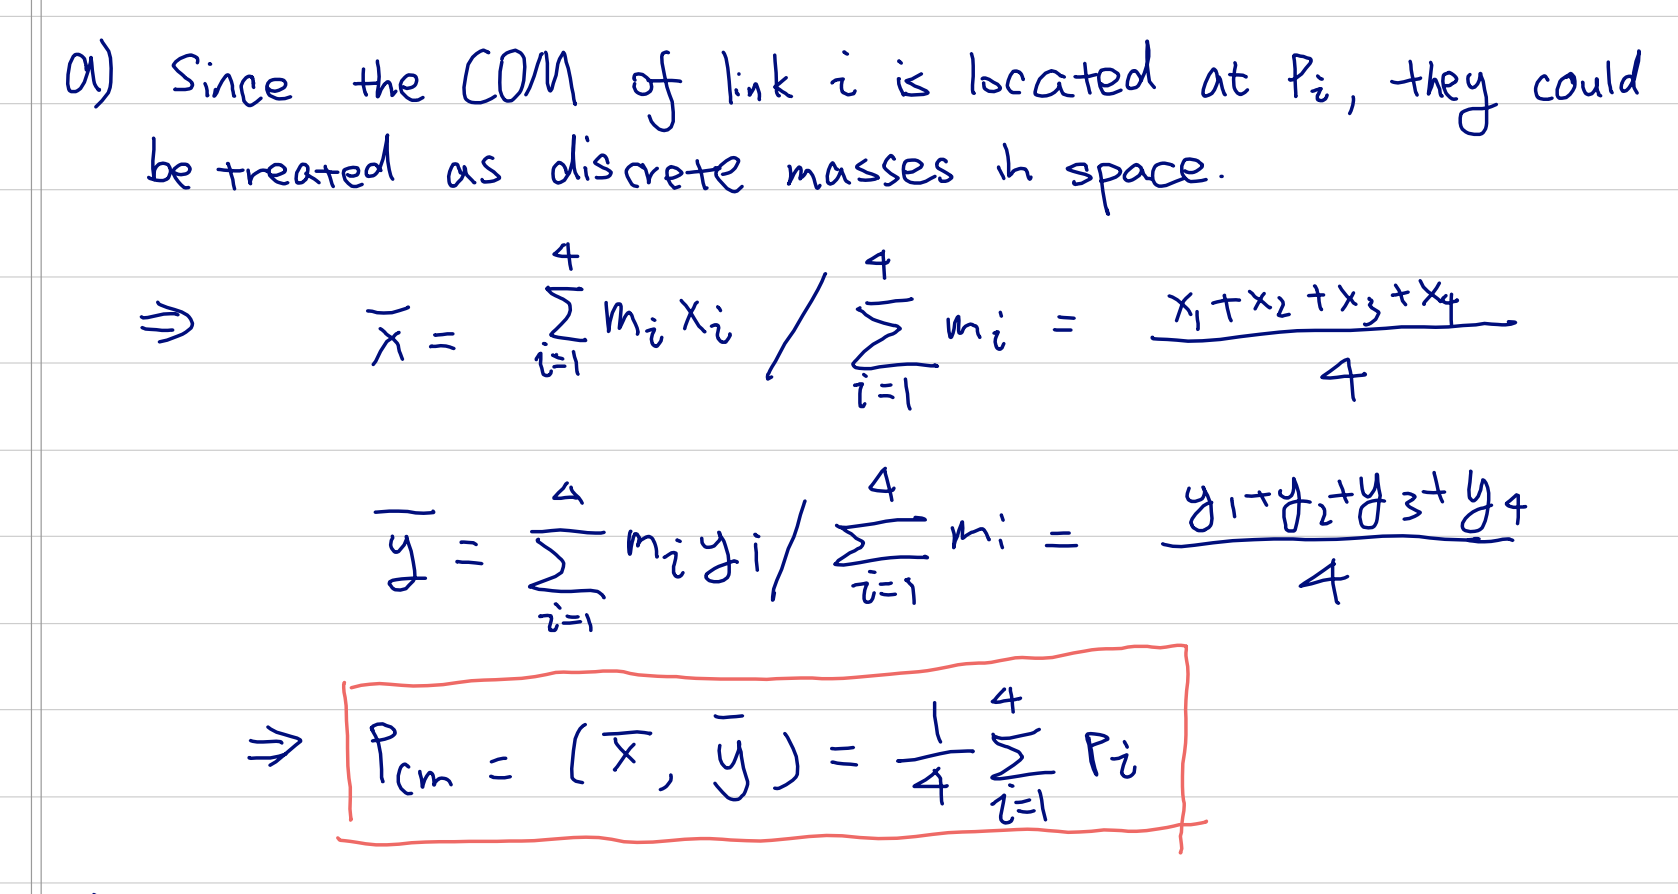 a) Since the COM of link i is located at Pi, they could
be treated as discrete masses in space.
⇒ x̄ = ∑_{i=1}^{4} m_i x_i / ∑_{i=1}^{4} m_i = (x_1 + x_2 + x_3 + x_4) / 4
ȳ = ∑_{i=1}^{4} m_i y_i / ∑_{i=1}^{4} m_i = (y_1 + y_2 + y_3 + y_4) / 4
⇒ P_cm = (x̄, ȳ) = 1/4 ∑_{i=1}^{4} P_i